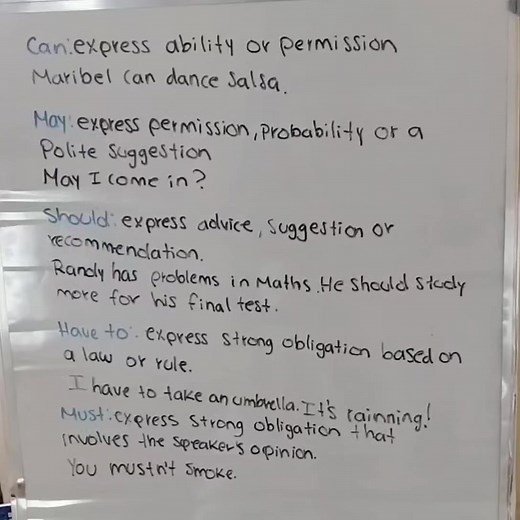 Can: express ability or permission
Maribel Can dance Salsa.
May: express permission, probability or a
Polite suggestion
May I come in?
Should: express advice, suggestion or
recommendation.
Randy has problems in Maths. He should study
more for his final test.
Have to: express strong obligation based on
a law or rule.
I have to take an umbrella. It's rainning!
Must: express strong obligation that
involves the speaker's opinion.
You mustn't smoke.